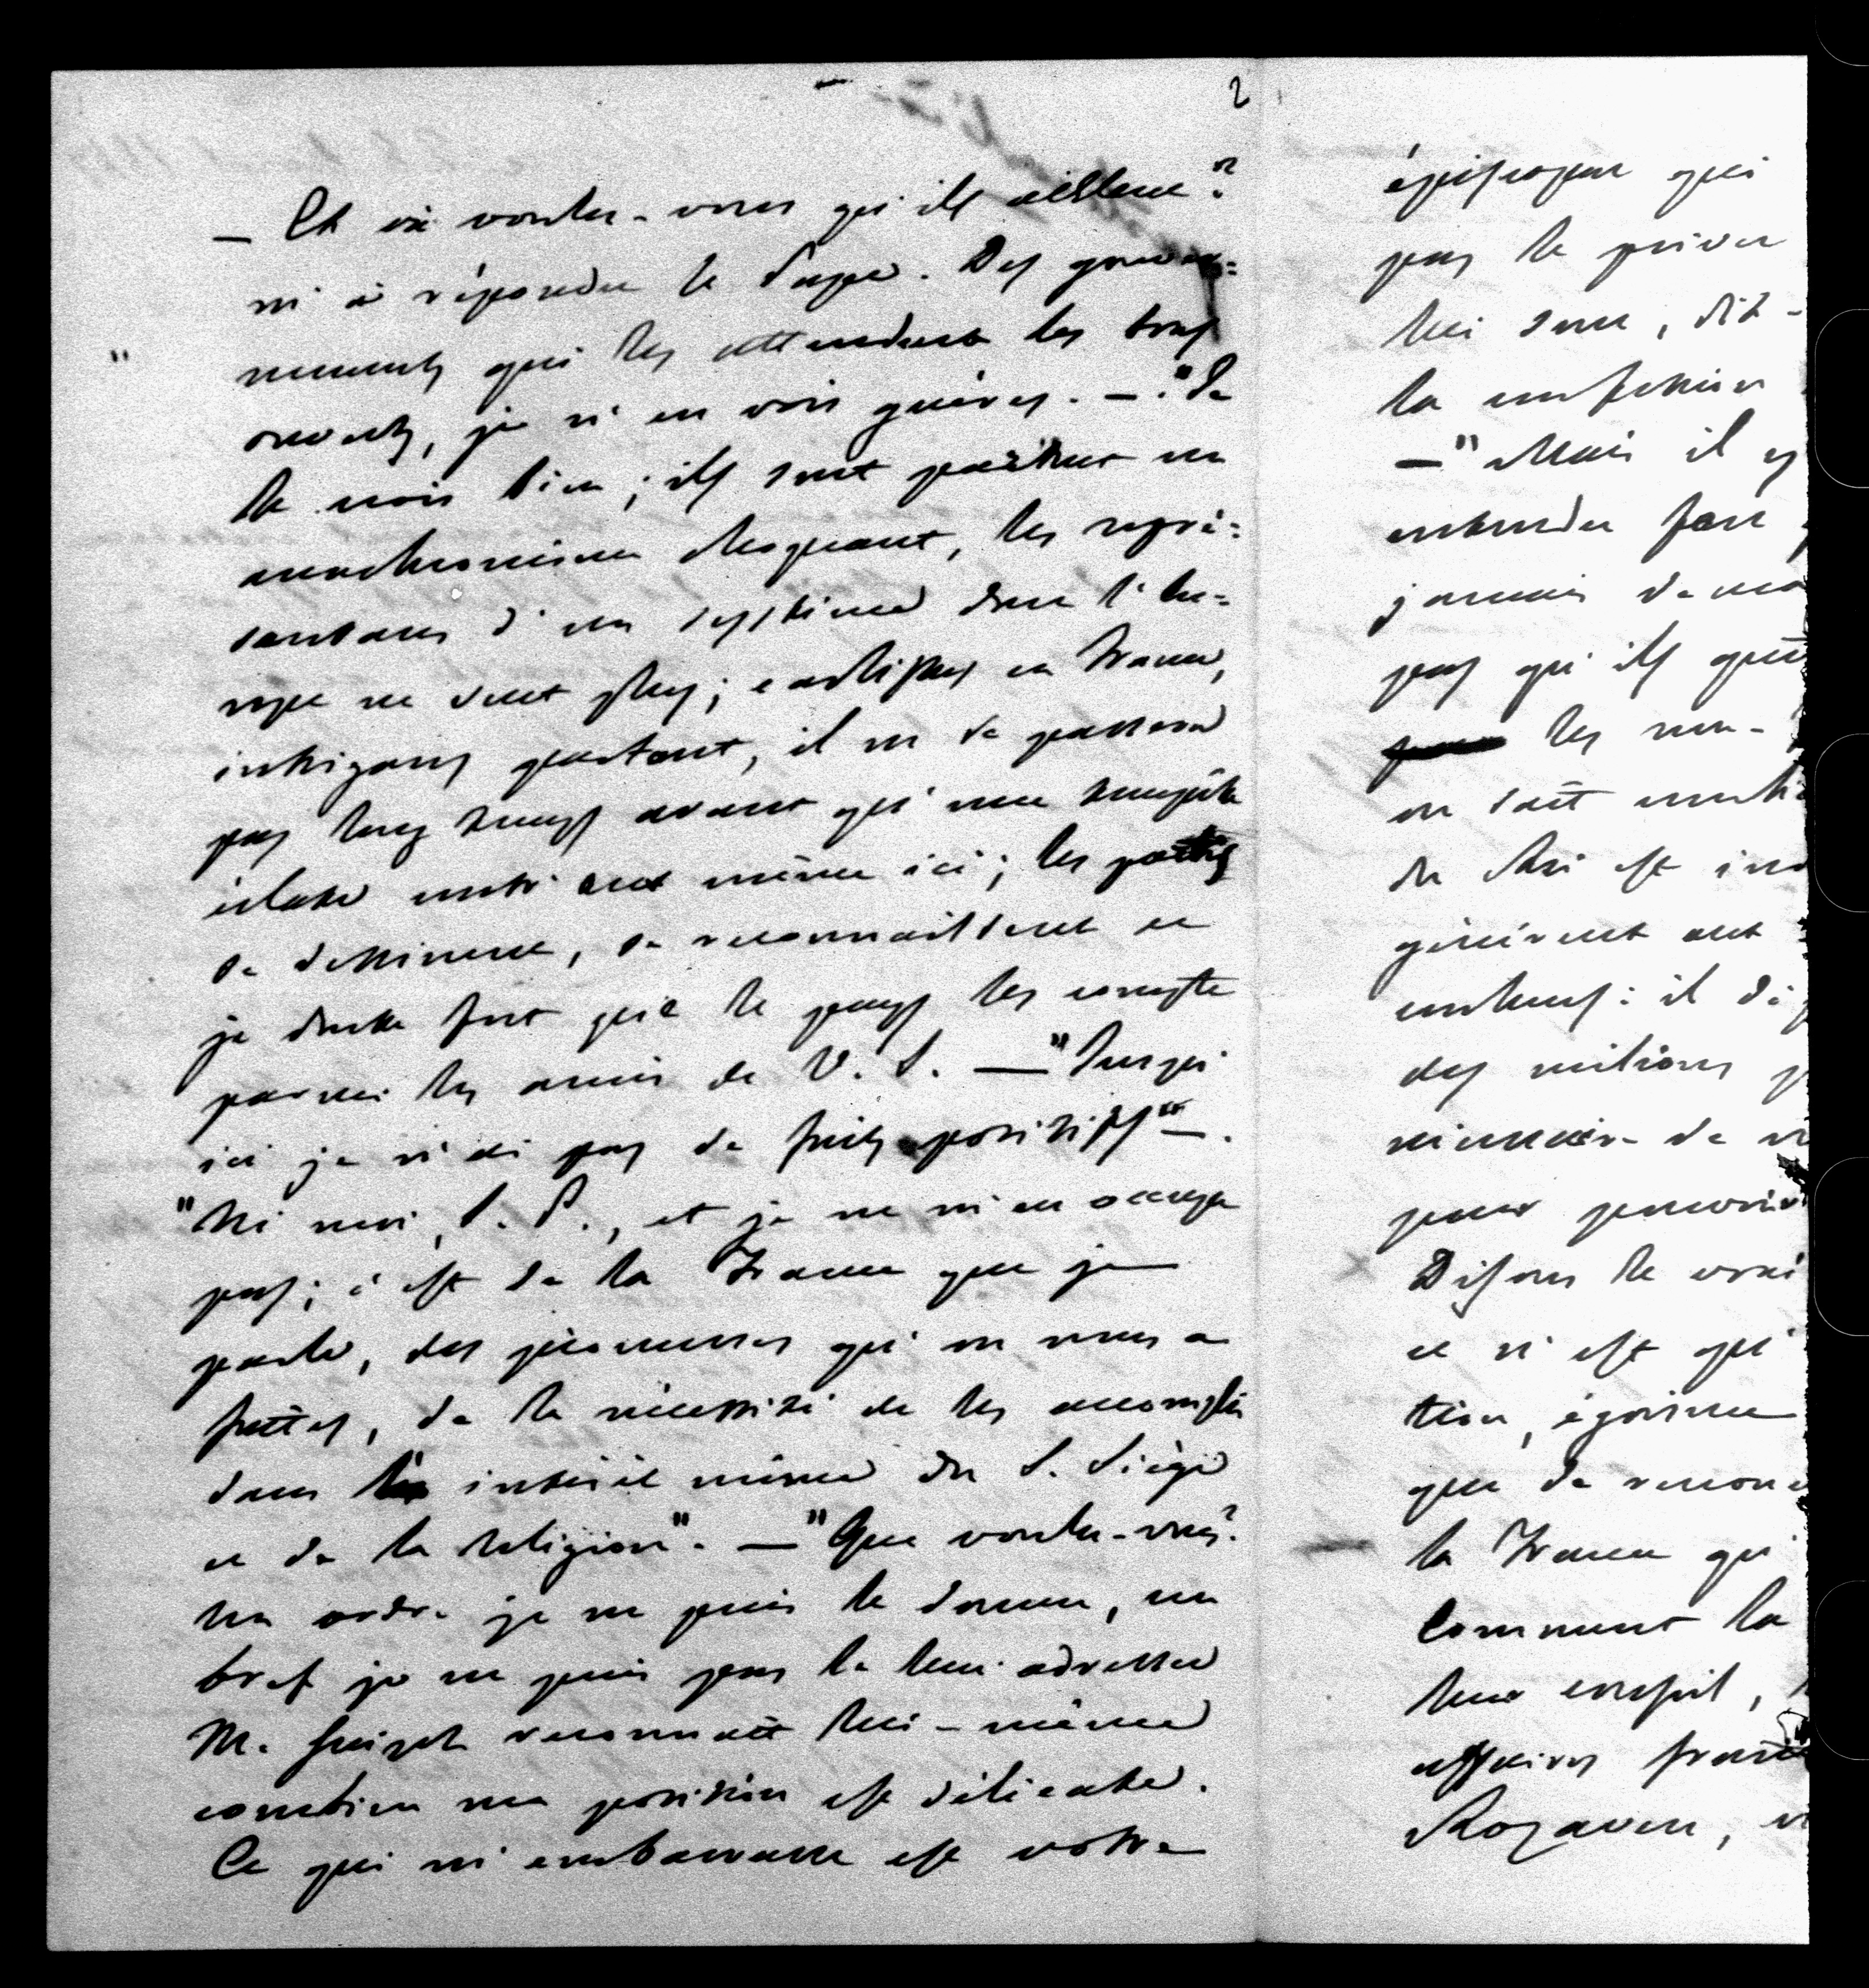 2
— Et où voulez-vous qu'ils aillent?
m'a répondu le Pape. Des gouver=
nements qui les attendent les bras
ouverts, je n'en vois guères. — "Je
le crois bien; ils sont partout un
anachronisme choquant, les repré=
sentans d'un système dont l'Eu=
rope ne veut plus; carlistes en France,
intrigans partout, il ne se passera
pas long temps avant qu'une tempête
éclate contr'eux même ici; les partis
se dessinent, se reconnaissent et
je doute fort que le pays les compte
parmi les amis de V. S. — "Jusqu'
ici je n'ai pas de faits positifs" —.
"Ni moi, S. P., et je ne m'en occupe
pas; c'est de la France que je
parle, des promesses qu'on nous a
faites, de la nécessité de les accomplir
dans l'intérêt même du S. Siège
et de la religion". — "Que voulez-vous?
Un ordre je ne puis le donner, un
bref je ne puis pas le leur adresser
M. Guizot reconnaît lui-même
combien ma position est délicate.
Ce qui m'embarrasse est votre
épiscopat qui
pas le priver
lui sont, dit-
la confession
— "Mais il
entendu faire
jamais
pas qu'ils
les
on sait
du Roi est
gênèrent ont
contens: il
des millions
de
pour
Disons le vrai
ce n'est qu'
tion, égoisme
que de
la France qu'
Comment la
leur conseil,
affaires
Rozaven,